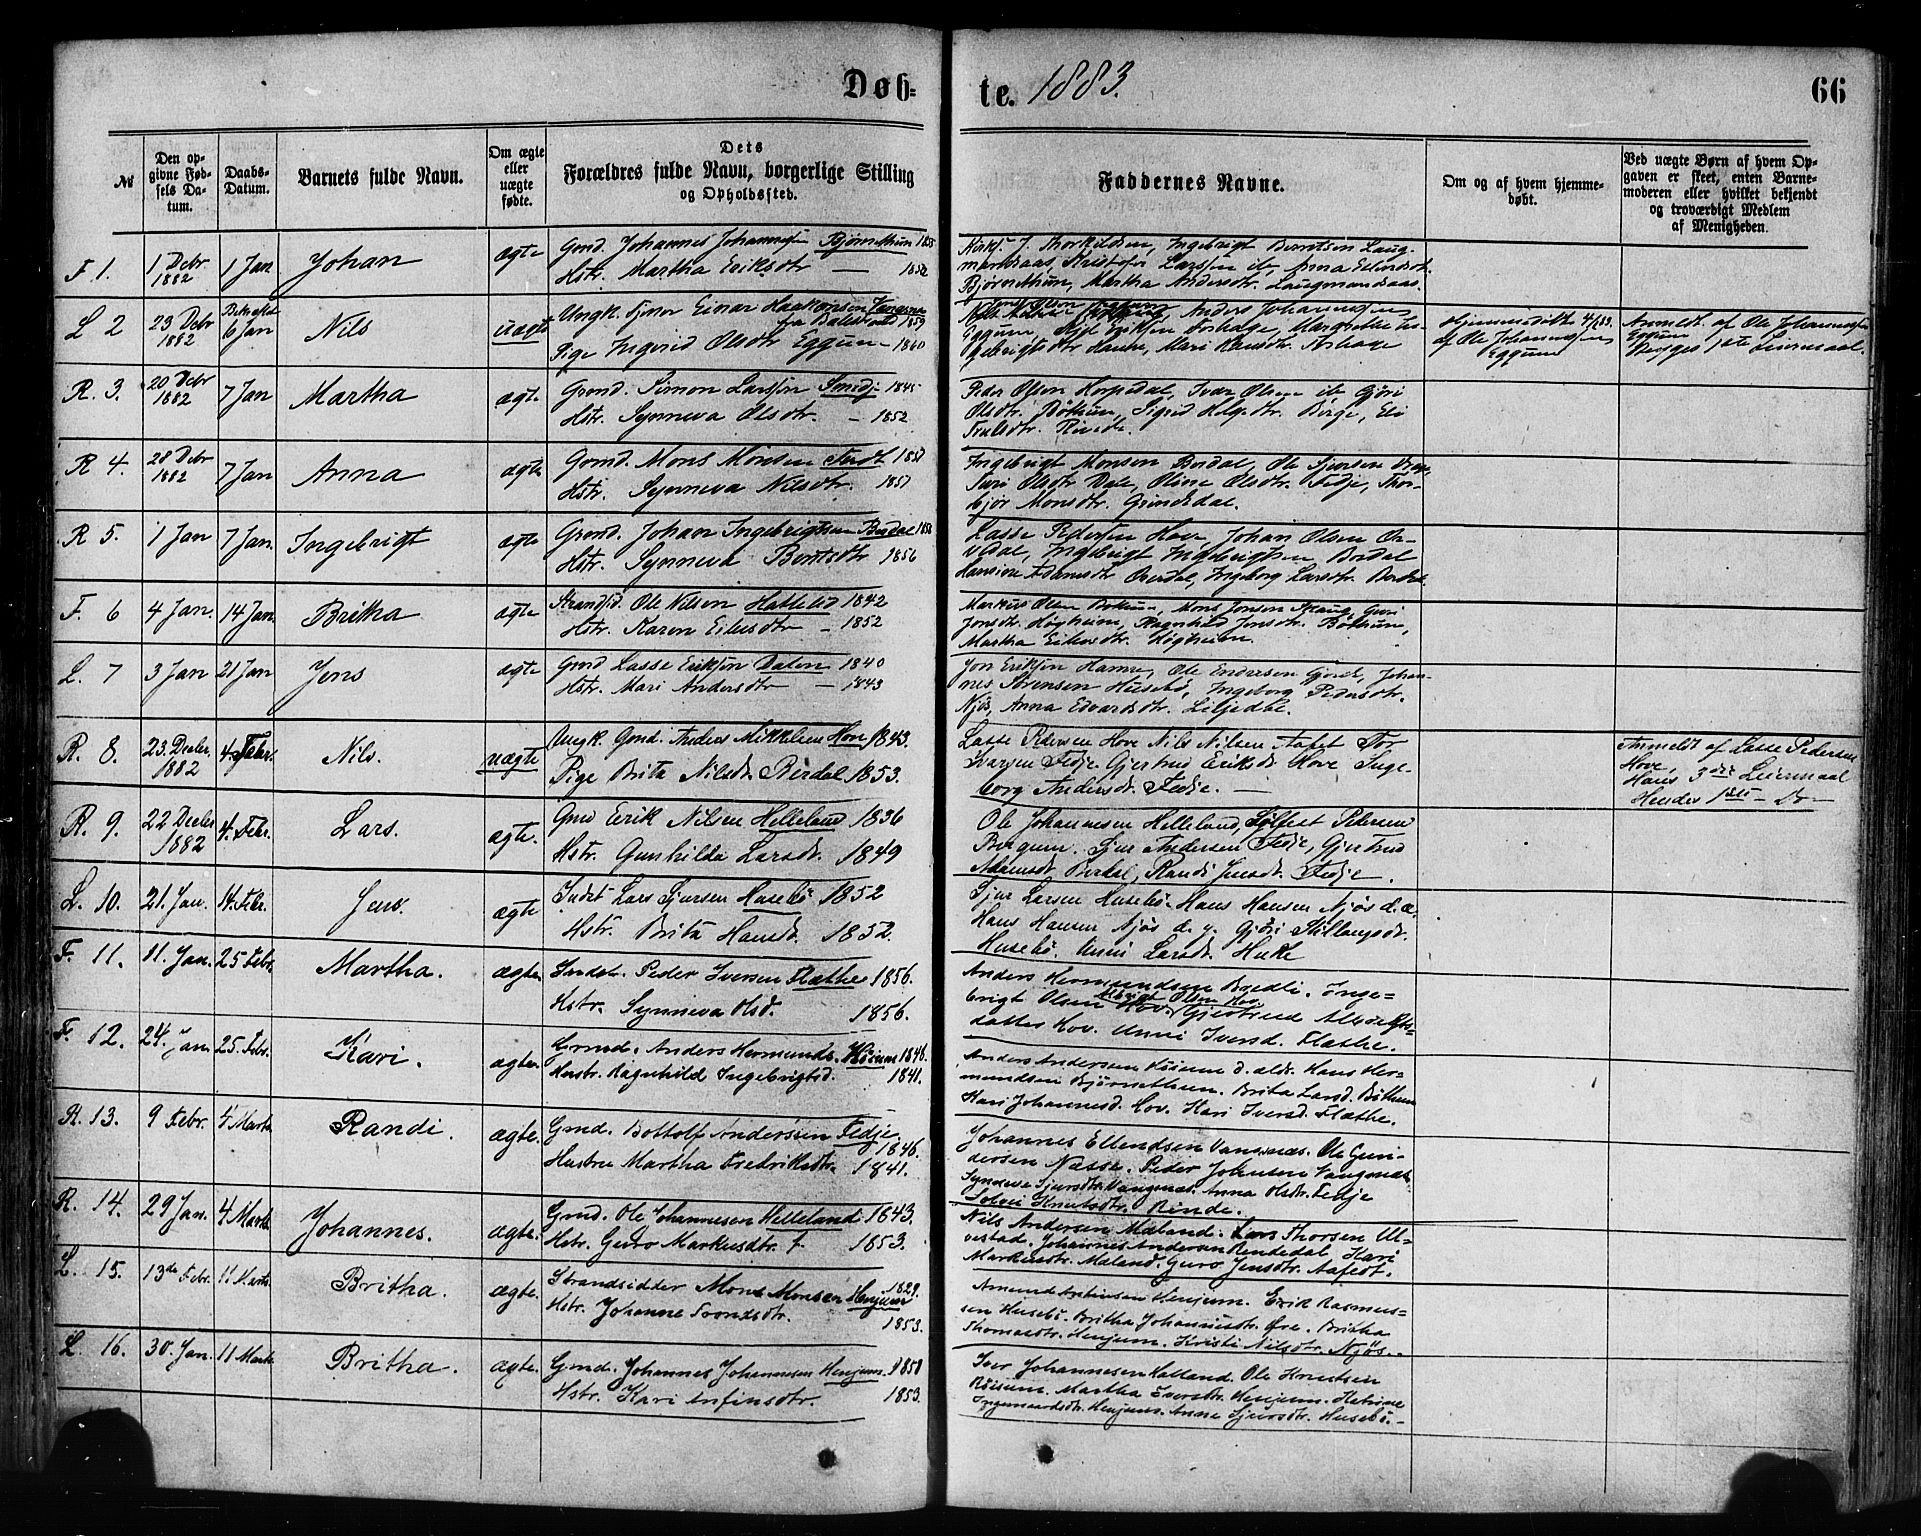 Døb-
te. 1883.
66
№
Den op-
givne Fød-
sels Da-
tum.
Daabs-
Datum.
Barnets fulde Navn.
Om ægte
eller
uægte
fødte.
Dets
Forældres fulde Navn, borgerlige Stilling
og Opholdssted.
Faddernes Navne.
Om og af hvem hjemme-
døbt.
Ved uægte Børn af hvem Op-
gaven er skeet, enten Barne-
moderen eller hvilket bekjendt
og troværdigt Medlem
af Menigheden.
F 1.
1 Debr
1882
1 Jan
Johan
ægte
Gmd. Johannes Johannessen Bjørnethun
Hstr. Martha Eriksdtr — 1852
Kirks. J. Thorkildsen, Ingebrigt Berntsen Laug-
mandsaas, Kristofer Larssen ib, Anna Erlendsdtr.
Bjørnethun, Martha Andersdtr. Laugmandsaas.
L 2
23 Debr
1882
6 Jan
Nils
uægte
Ungk. Einar Haakonsen Vangsnes
fra Balestrand 1859
Pige Ingerid Olsdtr Eggum — 1860
Anders Johannessen
Eggum
Hjemmedøbt 4/1 83.
af Ole Johannessen
Eggum
Anmeldt af Ole Johannessen
Eggum
Begges 1ste Leiermaal.
R. 3.
20 Debr
1882
7 Jan
Martha
ægte
Gmd. Simon Larssen 1845
Hstr. Synneva Olsdtr. — 1852
Peder Olsen Hopedal, Ivar Olsen ib Gjøri
Olsdtr. Bøthun, Sigrid
R 4.
28 Debr
1882
7 Jan
Anna
ægte
Gmd. Mons Monsen
Hstr. Synneva Nilsdtr. 1857
Ingebrigt Monsen Berdal, Ole Sjursen
Olsdtr Dale, Oline Olsdtr. Fedje, Thor-
bjør Monsdtr. Grindsdal.
R 5.
1 Jan
7 Jan.
Ingebrigt
ægte
Gmd. Johan Ingebrigtsen Berdal
Hstr. Synneva Berntsdtr 1856
Lasse Pedersen Hove, Johan Olsen Ove-
Ingebrigt Ingebrigtsen Berdal
Hansine Adamsdtr Overdal, Ingeborg Larsdtr. Berdal.
F. 6
4 Jan.
14 Jan.
Britha
ægte
Strandsid. Ole Nilsen Hatlelid 1842
Hstr. Karen Eilendsdtr — 1852
Markus Olsen Bøthun, Mons Jonsen
Jonsdtr. Høgheim, Ragnhild Jonsdtr. Bøthun,
Martha Høgheim.
L. 7
3 Jan
21 Jan
Jens
ægte
Gmd Lasse Eriksen Dalen 1840
Hstr. Mari Andersdtr — 1843
Jon Eriksen Hamre, Ole Endresen Gjerde, Johan-
nes Sørensen Husebø, Ingeborg Pedersdtr.
Njøs, Anna Edvardsdtr.
R. 8.
23. Decbr.
1882
4. Febr.
Nils.
uægte
Ungk. Gmd. Anders Mikkelsen Hove 1843.
Pige Brita Nilsdtr. Berdal 1853.
Lasse Pedersen Hove Nils Nilsen Aafet Tor
Ivarsen Fedje Gjertrud Eriksd. Hove Inge-
borg Andersdt. Fedje. —
Anmeldt af Lasse Pedersen
Hove,
Hans 3die Leiermaal
Hendes 1ste — Do —
R. 9.
22 Decbr
1882
4. Febr.
Lars.
ægte.
Gmd Erik Nilsen Helleland 1836
Hstr. Gunhilda Larsdt. 1849
Ole Johannesen Helleland, Pedersen
Bergum. Sjur Andersen Fedje, Gjertrud
Adamsdt Berdal, Randi Jensdt. Fedje.
L. 10.
21. Jan.
14. Febr.
Jens.
ægte
Indst Lars Sjursen Husebø 1852
Hstr. Brita Hansd. 1852.
Sjur Larsen Husebø. Hans Hansen Njøs d. æ.
Hans Hansen Njøs d. y. Gjøri
Husebø. Unni Larsdt. Hukle
F. 11.
11. Jan.
25 Febr.
Martha.
ægte.
Indstr. Peder Iversen Flæthe 1856.
Hstr. Synneva Olsd. 1856.
Anders Hermundsen Bredli. Inge=
brigt Olsen Hov, Gjertrud
datter Hov. Unni Iversd. Flæthe.
F. 12.
24. Jan
25. Febr.
Kari.
ægte.
Grmd. Anders Hermunds. 1846.
Hustr. Ragnhild Ingebrigtsd. 1841.
Anders Andersen d. ældr. Hans Her-
mundsen Bjørnethun. Brita Larsd. Bøthun
Kari Johannesd. Hov. Kari Iversd. Flæthe.
R. 13.
9 Febr.
4 Marts
Randi.
ægte.
Gmd. Bottolf Anderssen Fedje
1846.
Hustru Martha Fredriksdtr. 1841.
Johannes Ellendsen Vangsnæs. Ole Gun-
dersen Nasse. Peder Johnsen Vangsnæs
Synneve Sjursdtr. Vangsnæs. Anna Olsdtr. Fedje
Knutsdtr. Rinde.
R. 14.
29 Jan.
4 Marts
Johannes.
ægte.
Gmd. Ole Johannesen Helleland 1843.
Hstr. Guro Markusdtr. † 1853.
Nils Andersen Mæland. Lars Thorsen Ul=
vestad. Johannes Andersen Rendedal Kari
Markusdtr. Mæland. Guro Jensdtr. Aafedt.
L. 15.
13de Febr.
11 Marts
Britha.
ægte.
Strandsidder Mons Monsen Henjum 1829.
Hstr. Johanne 1853.
Amund Henjum. Erik Rasmus=
sen Husebø. Britha Johannesdtr. Øre. Britha
Thomasdtr. Henjum. Kristi Nilsdtr. Njøs.
L 16.
30. Jan.
11 Marts
Britha.
ægte.
Gmd. Johannes Johannesen Henjum.
Hstr. Kari Anfinsdtr. 1853.
Iver Johannesen Hatland. Ole Knutsen
Martha Iversdtr. Henjum.
Henjum. Anna Sjursdtr. Husebø.